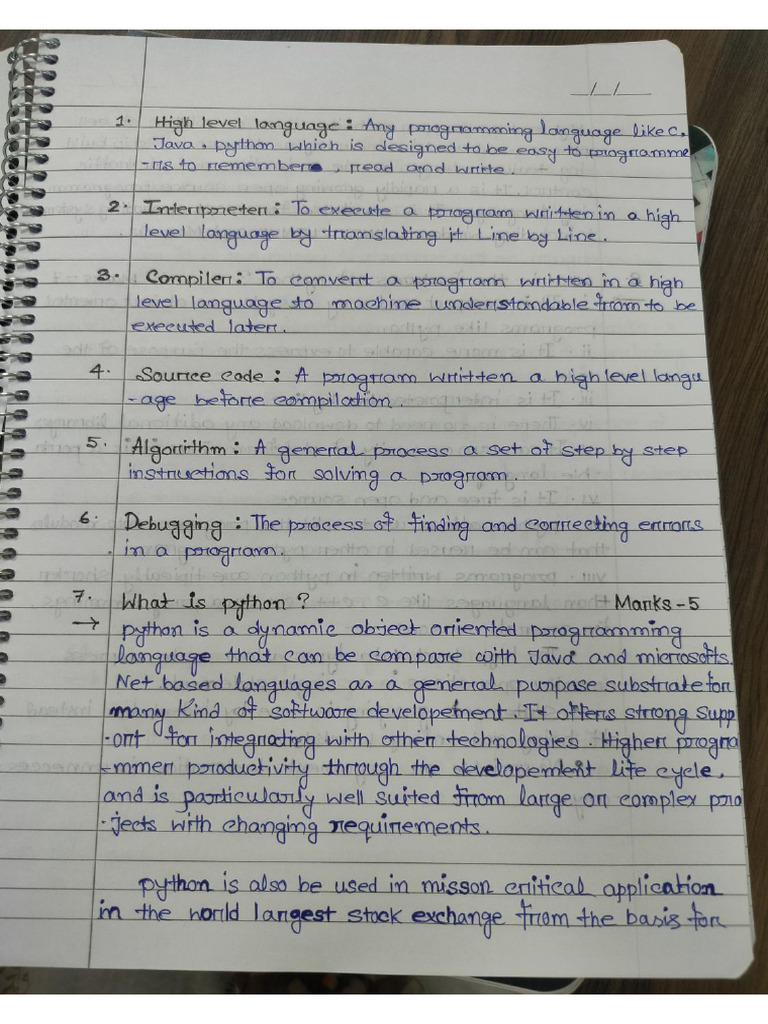 _/_/_
1. High level language : Any programming language like C,
Java, python which is designed to be easy to programme
-rs to remember, read and write.
2. Interpreter : To execute a program written in a high
level language by translating it Line by Line.
3. Compiler : To convert a program written in a high
level language to machine understandable from to be
executed later.
4. Source code : A program written a high level langu
-age before compilation.
5. Algorithm : A general process a set of step by step
instructions for solving a program.
6. Debugging : The process of finding and correcting errors
in a program.
7. What is python ? Marks-5
→ python is a dynamic object oriented programming
language that can be compare with Java and microsofts.
Net based languages as a general purpase substrate for
many kind of software developement. It offers strong supp
-ort for integrating with other technologies. Higher progra
-mmer productivity through the developement life cycle,
and is particularly well suited from large or complex pro
-jects with changing requirements.
python is also be used in misson critical application
in the world largest stock exchange from the basis for